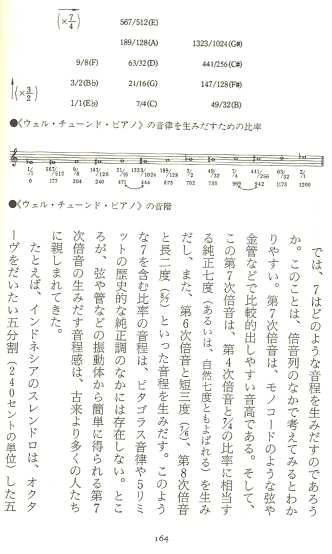 (×7/4)
567/512(E)
189/128(A) 1323/1024(G#)
9/8(F) 63/32(D) 441/256(C#)
3/2(B♭) 21/16(G) 147/128(F#)
(×3/2)
1/1(E♭) 7/4(C) 49/32(B)
●《ウェル・チューンド・ピアノ》の音律を生みだすための比率
1/1 567/512 9/8 147/128 21/16 1323/1024 189/128 3/2 49/32 7/4 441/256 63/32 2/1
0 177 204 240 471 444 675 702 738 969 942 1173 1200
●《ウェル・チューンド・ピアノ》の音階
では、7はどのような音程を生みだすのであろう
か。このことは、倍音列のなかで考えてみるとわか
りやすい。第7次倍音は、モノコードのような弦や
金管などで比較的出しやすい音高である。そして、
この第7次倍音は、第4次倍音と7/4の比率に相当す
る純正七度（あるいは、自然七度ともよばれる）を生み
だし、また、第6次倍音と短三度（7/6）、第8次倍音
と長二度（8/7）といった音程を生みだす。このよう
な7を含む比率の音程は、ピタゴラス音律や5リミ
ットの歴史的な純正調のなかには存在しない。とこ
ろが、弦や管などの振動体から簡単に得られる第7
次倍音の生みだす音程感は、古来より多くの人たち
に親しまれてきた。
たとえば、インドネシアのスレンドロは、オクタ
ーヴをだいたい五分割（240セントの単位）した五
164